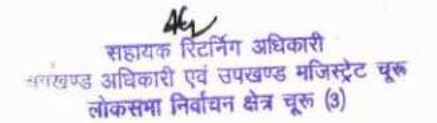 सहायक रिटर्निंग अधिकारी
उपखण्ड अधिकारी एवं उपखण्ड मजिस्ट्रेट चूरू
लोकसभा निर्वाचन क्षेत्र चूरू (3)